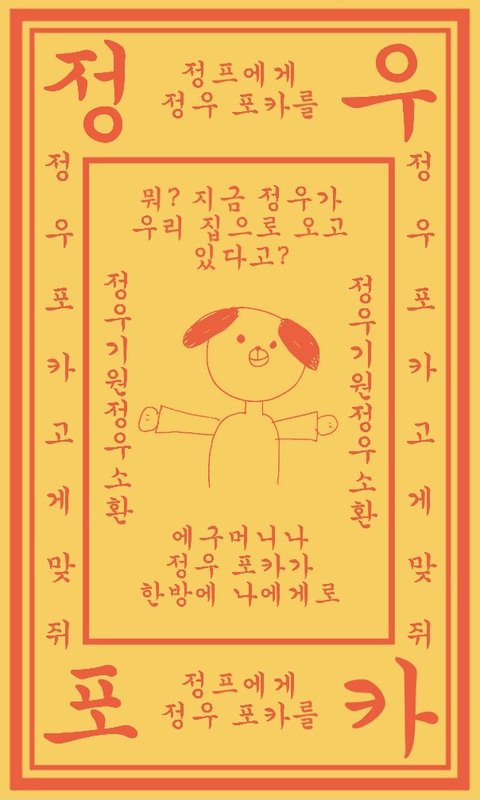 정
정프에게
정우 포카를
우
정우포카고게맞쥐
정우포카고게맞쥐
뭐? 지금 정우가
우리 집으로 오고
있다고?
정우기원정우소환
정우기원정우소환
에구머니나
정우 포카가
한방에 나에게로
포
정프에게
정우 포카를
카